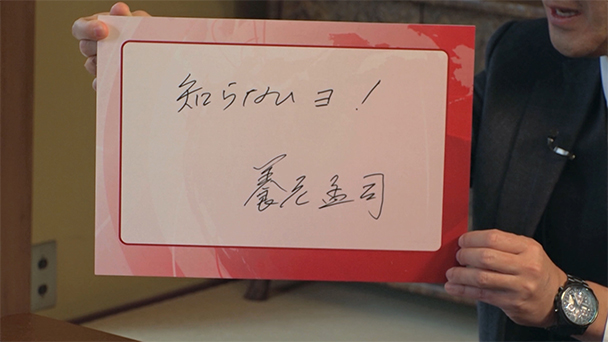 知らないヨ!
養老孟司